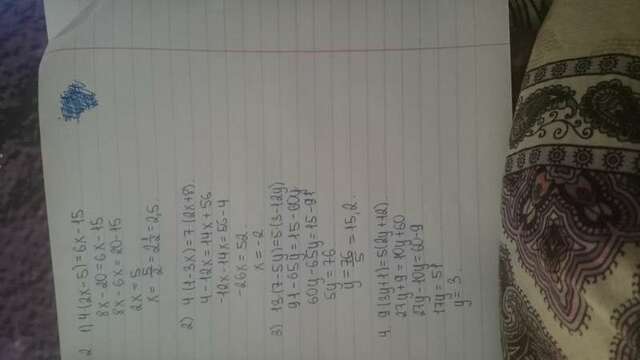 2. 1) 4·(2x-5)=6x-15
8x-20=6x-15
8x-6x=20-15
2x=5
x=5/2=2 1/2=2,5.
2) 4·(1-3x)=7·(2x+8).
4-12x=14x+56
-12x-14x=56-4
-26x=52.
x=-2
3) 13·(7-5y)=5·(3-12y)
91-65y=15-60y
60y-65y=15-91
5y=76
y=76/5=15,2.
4. 9(3y+1)=5(2y+12)
27y+9=10y+60
27y-10y=60-9
17y=51
y=3.